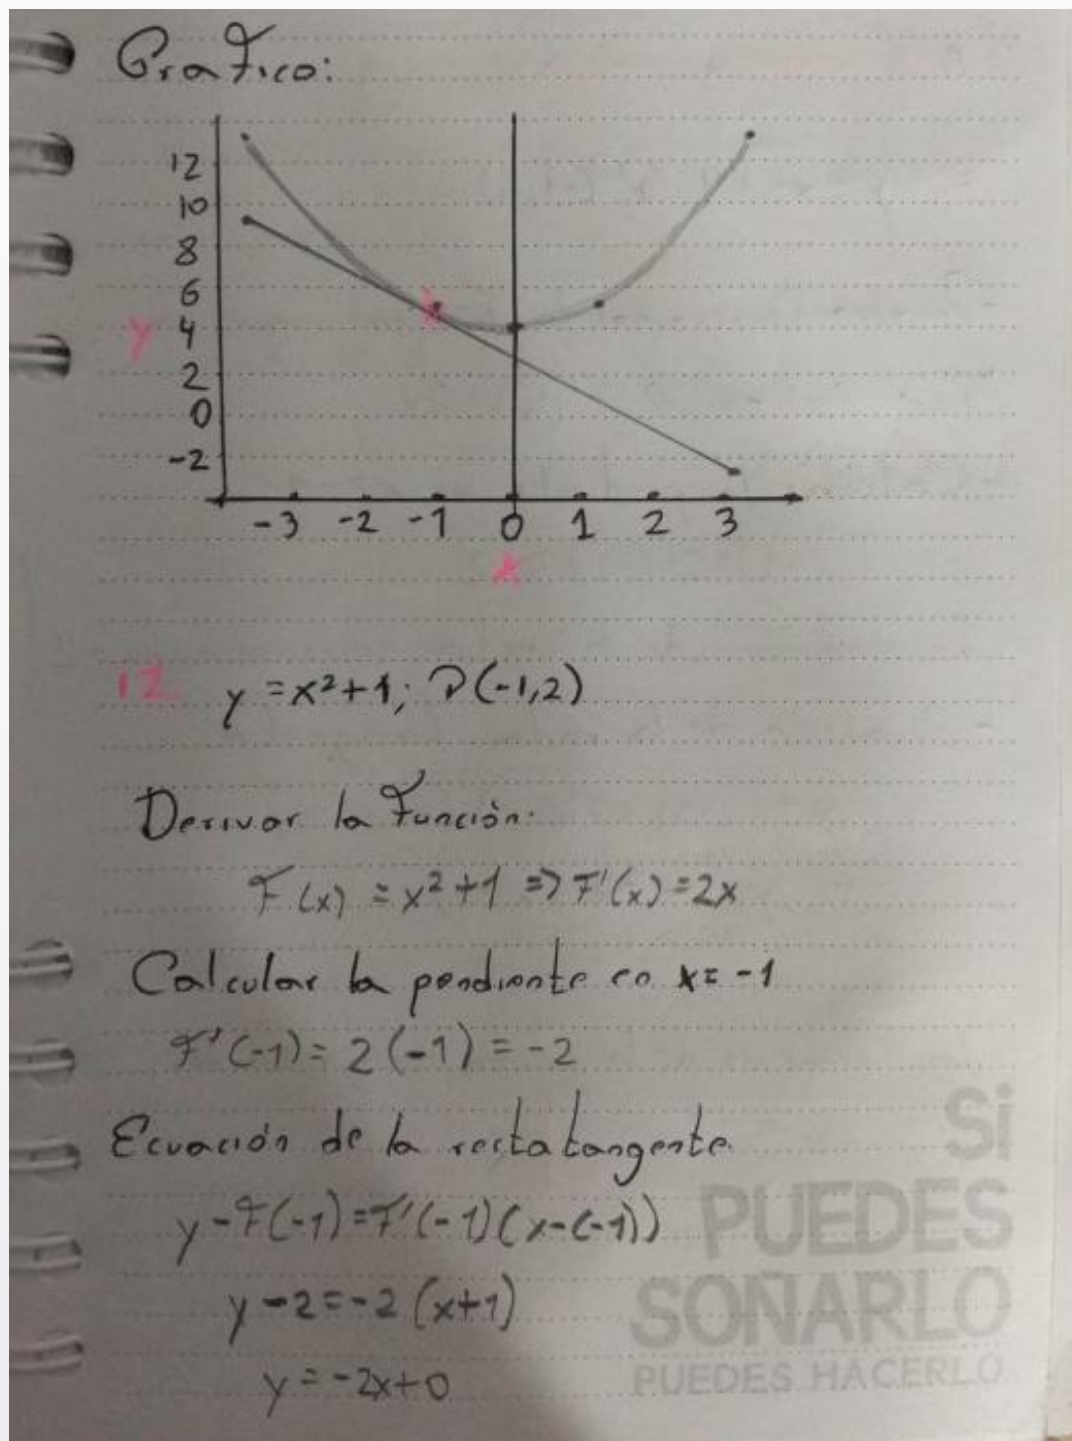 Grafico:
12
10
8
6
y 4
2
0
-2
-3 -2 -1 0 1 2 3
x
12. y = x² + 1; P(-1,2)
Derivar la Función:
F(x) = x² + 1 => F'(x) = 2x
Calcular la pendiente en x = -1
F'(-1) = 2(-1) = -2
Ecuación de la recta tangente.
y - F(-1) = F'(-1)(x-(-1))
y - 2 = -2(x+1)
y = -2x+0
Si
PUEDES
SOÑARLO
PUEDES HACERLO